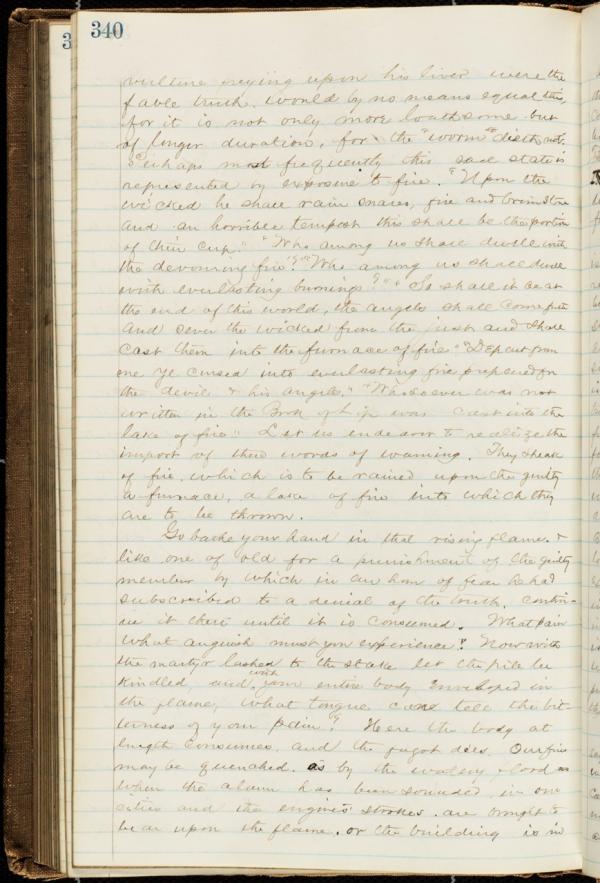 340
vulture preying upon his liver were the
fable truth. would by no means equal this,
for it is not only more loathsome but
of longer duration, for the "worm" dieth not.
Perhaps most frequently this sad state is
represented by exposure to fire. "Upon the
wicked he shall rain snares, fire and brimstone
and an horrible tempest this shall be the portion
of their cup." "Who among us shall dwell with
the devouring fire"? "Who among us shall dwell
with everlasting burnings"? "So shall it be at
the end of this world, the angels shall come forth
and sever the wicked from the just and shall
cast them into the furnace of fire" "Depart from
me ye cursed into everlasting fire prepared for
the devil & his angels." "Whosoever was not
written in the Book of Life was cast into the
lake of fire" Let us endeavor to realize the
import of these words of warning. They speak
of fire, which is to be rained upon the guilty
a furnace, a lake of fire into which they
are to be thrown.
Go bathe your hand in that rising flame. &
like one of old for a punishment of the guilty
member by which in an hour of fear he had
subscribed to a denial of the truth, contin-
ue it there until it is consumed. What pain
what anguish must you experience? Now with
the martyr lashed to the stake let the pile be
kindled, and with your entire body enveloped in
the flame, what tongue can tell the bit-
terness of your pain? Here the body at
length consumes, and the fagot dies. Our fires
may be quenched. as by the watery flood as
when the alarm has been sounded in our
cities and the engine's strokes are brought to
bear upon the flame, or the building is in
3